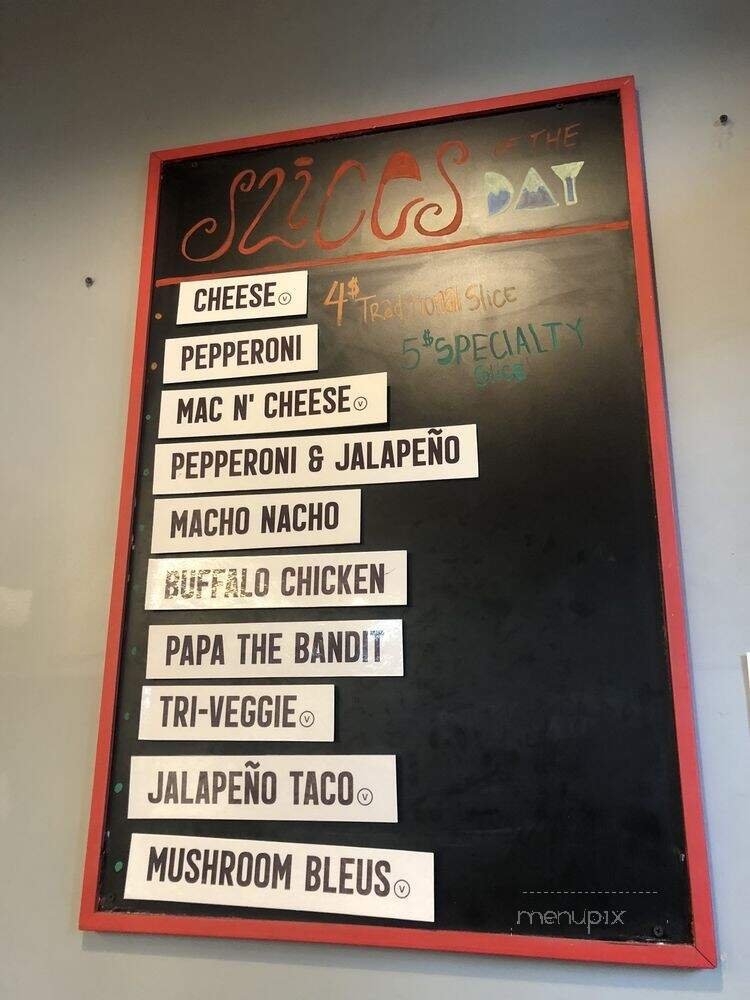 SLICES OF THE DAY
CHEESE V
4$ Traditional Slice
PEPPERONI
5$ SPECIALTY
Slice
MAC N' CHEESE V
PEPPERONI & JALAPEÑO
MACHO NACHO
BUFFALO CHICKEN
PAPA THE BANDIT
TRI-VEGGIE V
JALAPEÑO TACO V
MUSHROOM BLEUS V
menupix